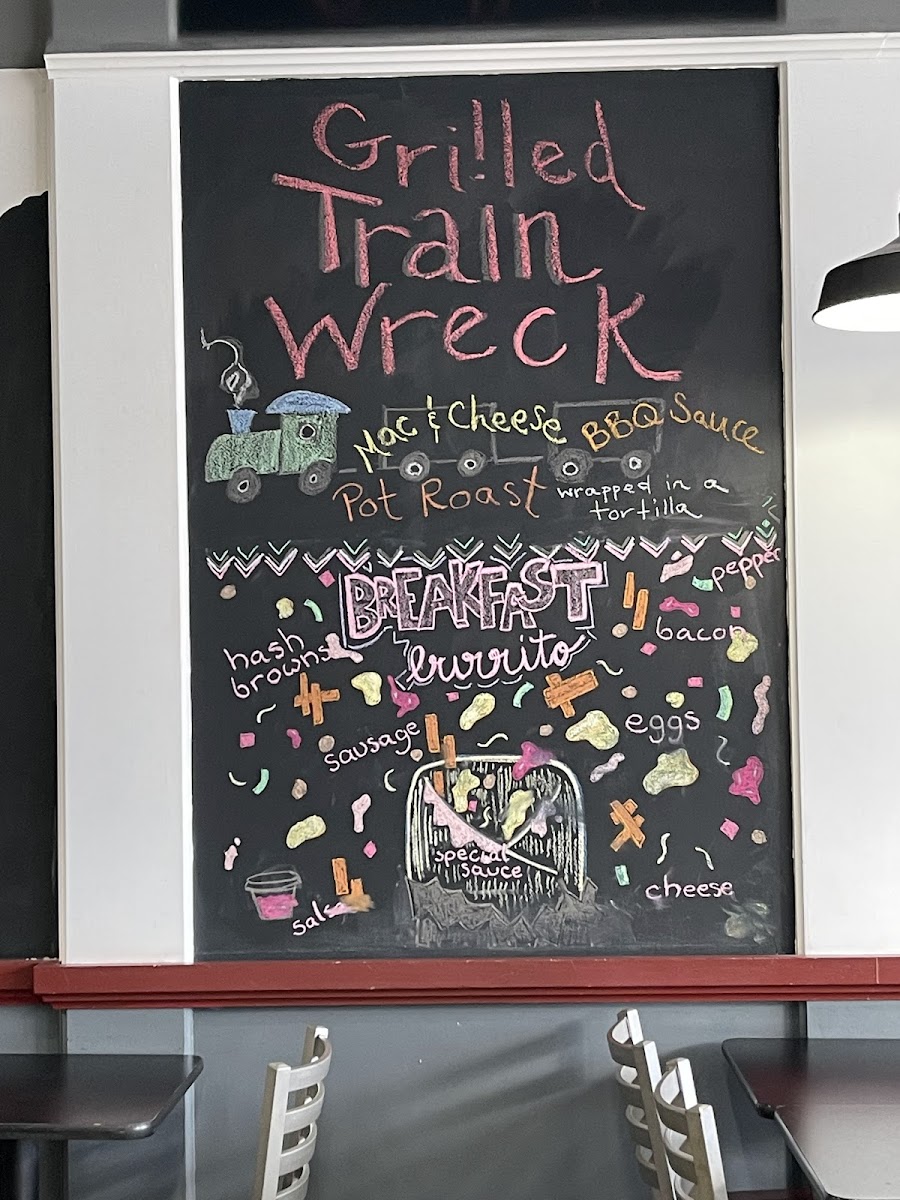 Grilled
Train
Wreck
Mac & Cheese
BBQ Sauce
Pot Roast
wrapped in a
tortilla
BREAKFAST
burrito
pepper
bacon
hash
browns
sausage
eggs
special
sauce
cheese
salsa